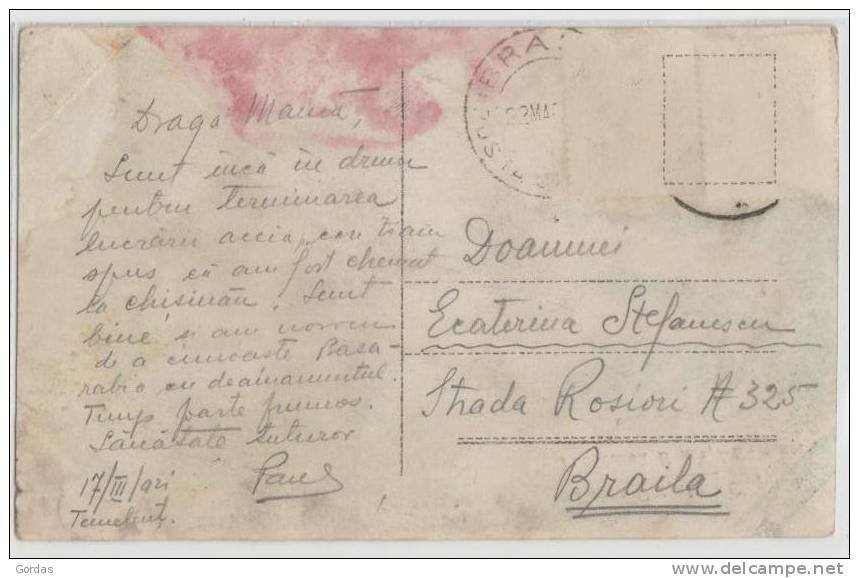 Draga Mamă,
Sunt încă în drum
pentru terminarea
lucrării aceia, cum ți-am
spus că am fost chemat
la Chișinău. Sunt
bine și am noroc
de a cunoaște Basa-
rabia cu deamănuntul.
Timp foarte frumos.
Sănătate tuturor
17/III/921
BRA
22 MAR
Doamnei
Ecaterina Stefanescu
Strada Rosiori № 325
Braila
Gordas
delcampe.net